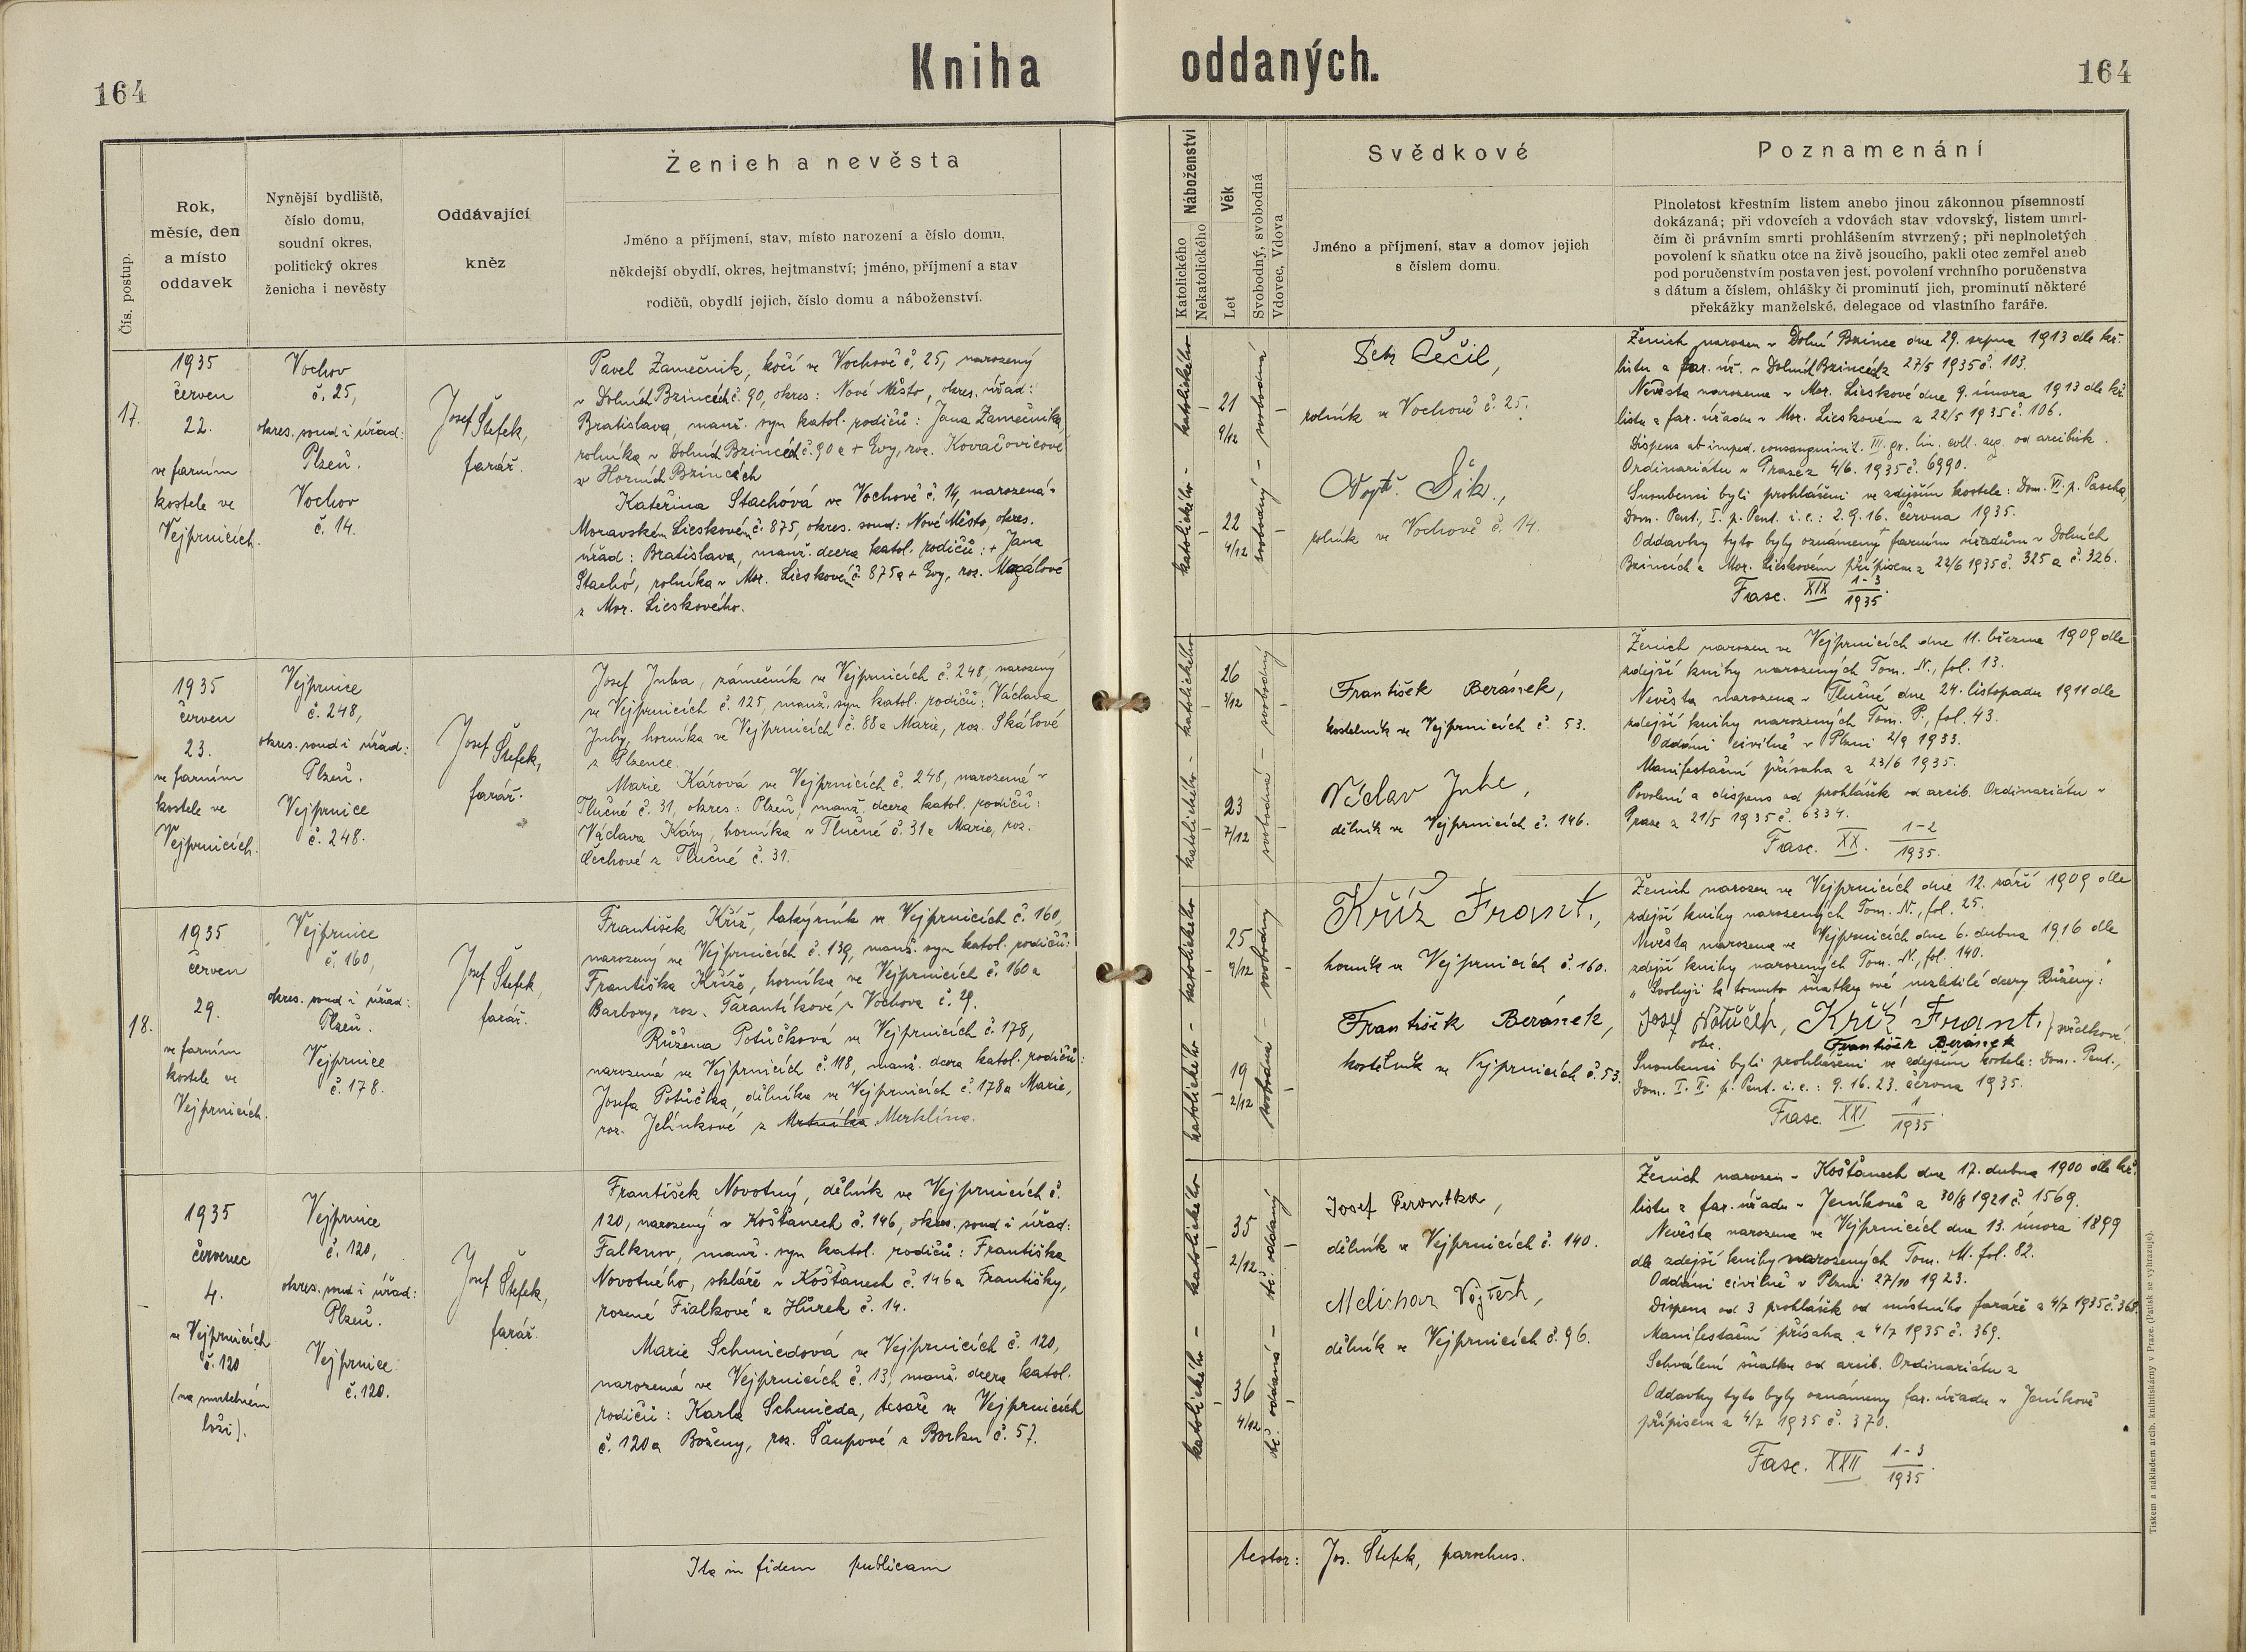 164
Kniha oddaných.
164
Čís. postup.
Rok,
měsíc, den
a místo
oddavek
Nynější bydliště,
číslo domu,
soudní okres,
politický okres
ženicha i nevěsty
Oddávající
kněz
Ženich a nevěsta
Jméno a příjmení, stav, místo narození a číslo domu,
někdejší obydlí, okres, hejtmanství; jméno, příjmení a stav
rodičů, obydlí jejich, číslo domu a náboženství.
Náboženství
Katolického
Nekatolického
Věk
Let
Svobodný, svobodná
Vdovec, Vdova
Svědkové
Jméno a příjmení, stav a domov jejich
s číslem domu.
Poznamenání
Plnoletost křestním listem anebo jinou zákonnou písemností
dokázaná; při vdovcích a vdovách stav vdovský, listem umrl-
čím či právním smrti prohlášením stvrzený; při neplnoletých
povolení k sňatku otce na živě jsoucího, pakli otec zemřel aneb
pod poručenstvím postaven jest, povolení vrchního poručenstva
s dátum a číslem, ohlášky či prominutí jich, prominutí některé
překážky manželské, delegace od vlastního faráře.
17.
1935
červen
22.
ve farním
kostele ve
Vejprnicích.
Vochov
č. 25,
okres. soud i úřad:
Plzeň.
Vochov
č. 14.
Josef Štefek,
farář.
Pavel Zámečník, kočí ve Vochově č. 25, narozený
v Dolních Bzincích č. 90, okres: Nové Město, okres. úřad:
Bratislava, manž. syn katol. rodičů: Jana Zámečníka,
rolníka v Dolních Bzincích č. 90 a + Evy, roz. Kovačovicové
z Horních Bzincích
Kateřina Stachová ve Vochově č. 14, narozená v
Moravském Lieskovém č. 875, okres. soud: Nové Město, okres.
úřad: Bratislava, manž. dcera katol. rodičů: + Jana
Stachó, rolníka v Mor. Lieskovém č. 875 a + Evy, roz. Magálové
z Mor. Lieskového.
katolického - katolického
21
9/12
22
4/12
svobodný - svobodná
Petr Čečil,
rolník ve Vochově č. 25.
Vojt. Šik.,
rolník ve Vochově č. 14.
Ženich narozen v Dolní Bzince dne 29. srpna 1913 dle kř.
listu z far. úř. v Dolních Bzincích z 27/5 1935 č. 103.
Nevěsta narozena v Mor. Lieskové dne 9. února 1913 dle kř.
listu z far. úřadu v Mor. Lieskovém z 22/5 1935 č. 106.
Dispens ab imped. consanguinit. III gr. lin. coll. aeq. od arcibisk.
Ordinariátu v Praze z 4/6. 1935 č. 6990.
Snoubenci byli prohlášeni ve zdejším kostele: Dom. VI. p. Pascha,
Dom. Pent., I. p. Pent. i. e.: 2. 9. 16. června 1935.
Oddavky tyto byly oznámeny farním úřadům v Dolních
Bzincích a Mor. Lieskovém přípisem z 22/6 1935 č. 325 a č. 326.
Fasc. XIX 1-3/1935.
1935
červen
23.
ve farním
kostele ve
Vejprnicích.
Vejprnice
č. 248,
okres. soud i úřad:
Plzeň.
Vejprnice
č. 248.
Josef Štefek,
farář.
Josef Juba, zámečník ve Vejprnicích č. 248, narozený
ve Vejprnicích č. 125, manž. syn katol. rodičů: Václava
Juby, horníka ve Vejprnicích č. 88 a Marie, roz. Skálové
z Plzence.
Marie Kárová ve Vejprnicích č. 248, narozená v
Tlučné č. 31, okres: Plzeň, manž. dcera katol. rodičů:
Václava Káry, horníka v Tlučné č. 31 a Marie, roz.
Čechové z Tlučné č. 31.
katolického - katolického
26
3/12
23
7/12
svobodná - svobodný
František Beránek,
kostelník ve Vejprnicích č. 53.
Václav Juba,
dělník ve Vejprnicích č. 146.
Ženich narozen ve Vejprnicích dne 11. března 1909 dle
zdejší knihy narozených Tom. N., fol. 13.
Nevěsta narozena v Tlučné dne 24. listopadu 1911 dle
zdejší knihy narozených Tom. P., fol. 43.
Oddáni civilně v Plzni 2/9 1933.
Manifestační přísaha z 23/6 1935.
Povolení a dispens od prohlášek od arcib. Ordinariátu v
Praze z 21/5 1935 č. 6334.
Fasc. XX. 1-2/1935.
18.
1935
červen
29.
ve farním
kostele ve
Vejprnicích.
Vejprnice
č. 160,
okres. soud i úřad:
Plzeň.
Vejprnice
č. 178.
Josef Štefek,
farář.
František Kříž, lakýrník ve Vejprnicích č. 160,
narozený ve Vejprnicích č. 139, manž. syn katol. rodičů:
Františka Kříže, horníka ve Vejprnicích č. 160 a
Barbory, roz. Tarantíkové z Vochova č. 29.
Růžena Potůčková ve Vejprnicích č. 178,
narozená ve Vejprnicích č. 118, manž. dcera katol. rodičů:
Josefa Potůčka, dělníka ve Vejprnicích č. 178 a Marie,
roz. Jelínkové z Merklína.
katolického - katolického
25
9/12
19
2/12
svobodná - svobodný
Kříž Frant.,
horník ve Vejprnicích č. 160.
František Beránek,
kostelník ve Vejprnicích č. 53.
Ženich narozen ve Vejprnicích dne 12. září 1909 dle
zdejší knihy narozených Tom. N., fol. 25.
Nevěsta narozena ve Vejprnicích dne 6. dubna 1916 dle
zdejší knihy narozených Tom. N., fol. 140.
"Svoluji k tomuto sňatku své nezletilé dcery Růženy:"
Josef Potůček, Kříž Frant. } svědkové.
otec. František Beránek
Snoubenci byli prohlášeni ve zdejším kostele: Dom. Pent.,
Dom. I. II. p. Pent. i. e.: 9. 16. 23. června 1935.
Fasc. XXI 1/1935
1935
červenec
4.
ve Vejprnicích
č. 120
(na smrtelném
loži).
Vejprnice
č. 120,
okres. soud i úřad:
Plzeň.
Vejprnice
č. 120.
Josef Štefek,
farář.
František Novotný, dělník ve Vejprnicích č.
120, narozený v Košťanech č. 146, okres. soud i úřad:
Falknov, manž. syn katol. rodičů: Františka
Novotného, skláře v Košťanech č. 146 a Františky,
rozené Fialkové z Hůrek č. 14.
Marie Schmiedová ve Vejprnicích č. 120,
narozená ve Vejprnicích č. 13, manž. dcera katol.
rodičů: Karla Schmieda, tesaře ve Vejprnicích
č. 120 a Boženy, roz. Šaupové z Borku č. 57.
katolického - katolického
35
2/12
36
4/12
civ. oddaná - civ. oddaný
Josef Perontka,
dělník ve Vejprnicích č. 140.
Melichar Vojtěch,
dělník ve Vejprnicích č. 96.
Ženich narozen v Košťanech dne 17. dubna 1900 dle kř.
listu z far. úřadu v Jeníkově z 30/8 1921 č. 1569.
Nevěsta narozena ve Vejprnicích dne 13. února 1899
dle zdejší knihy narozených Tom. M. fol. 82.
Oddáni civilně v Plzni 27/10 1923.
Dispens od 3 prohlášek od místního faráře z 4/7 1935 č. 368.
Manifestační přísaha z 4/7 1935 č. 369.
Schválení sňatku od arcib. Ordinariátu z
Oddavky tyto byly oznámeny far. úřadu v Jeníkově
přípisem z 4/7 1935 č. 370.
Fasc. XXII 1-3/1935.
Ita in fidem publicam
testor: Jos. Štefek, parochus.
Tiskem a nákladem arcib. knihtiskárny v Praze. (Patisk se vyhrazuje).